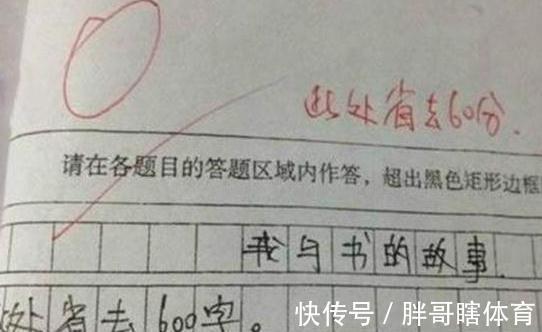 此处省去60分.
请在各题目的答题区域内作答，超出黑色矩形边框
我与书的故事.
处省去600字。
快传号／胖哥瞎体育